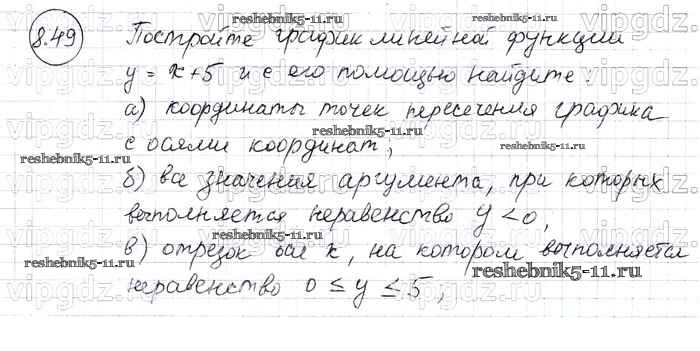 reshebnik5-11.ru
8.49 Постройте график линейной функции
y = x+5 и с его помощью найдите:
а) координаты точек пересечения графика
с осями координат;
reshebnik5-11.ru reshebnik5-11.ru reshebnik5-11.ru
б) все значения аргумента, при которых
выполняется неравенство y < 0,
в) отрезок оси x, на котором выполняется
reshebnik5-11.ru reshebnik5-11.ru
неравенство 0 ≤ y ≤ 5;
vipgdz.ru